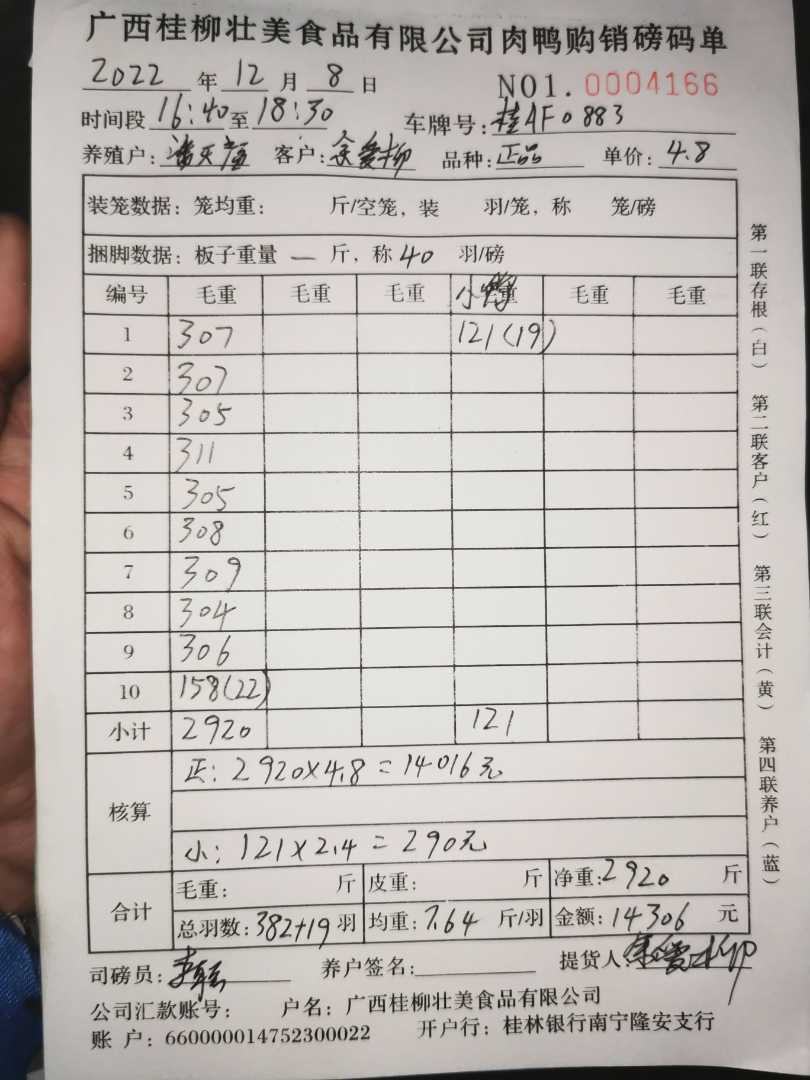 广西桂柳壮美食品有限公司肉鸭购销磅码单
2022 年 12 月 8 日 NO1. 0004166
时间段 16:40 至 18:30 车牌号: 桂AF0883
养殖户: 客户: 余爱柳 品种: 正品 单价: 4.8
装笼数据: 笼均重: 斤/空笼, 装 羽/笼, 称 笼/磅
捆脚数据: 板子重量 — 斤, 称 40 羽/磅
编号 毛重 毛重 毛重 小鸭 毛重 毛重
1 307 121(19)
2 307
3 305
4 311
5 305
6 308
7 309
8 304
9 306
10 158(22)
小计 2920 121
核算
正: 2920×4.8=14016元
小: 121×2.4=290元
合计
毛重: 斤 皮重: 斤 净重: 2920 斤
总羽数: 382+19 羽 均重: 7.64 斤/羽 金额: 14306 元
司磅员: 养户签名: 提货人: 余爱柳
公司汇款账号: 户名: 广西桂柳壮美食品有限公司
账 户: 660000014752300022 开户行: 桂林银行南宁隆安支行
第一联存根(白) 第二联客户(红) 第三联会计(黄) 第四联养户(蓝)